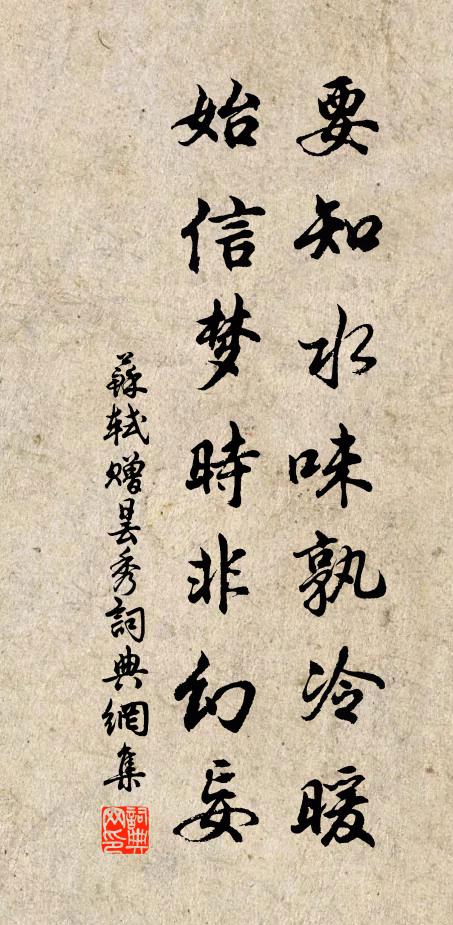 要知水味孰冷暖
始信梦時非幻妄
蘇軾贈曇秀詞典網集
詞典网印